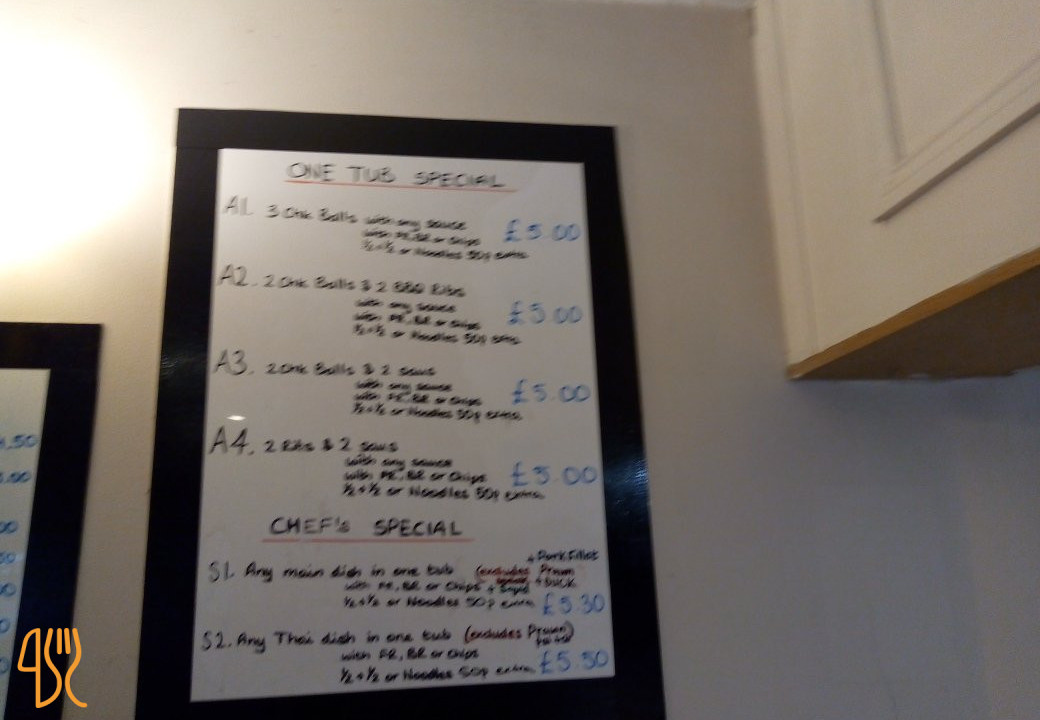 ONE TUB SPECIAL
A1. 3 Chk Balls with any sauce £5.00
with FR, BR or Chips
½+½ or Noodles 50p extra
A2. 2 Chk Balls & 2 BBQ Ribs
with any sauce £5.00
with FR, BR or Chips
½+½ or Noodles 50p extra
A3. 2 Chk Balls & 2
with any sauce £5.00
with FR, BR or Chips
½+½ or Noodles 50p extra
A4. 2 Ribs & 2
with any sauce
with FR, BR or Chips £5.00
½+½ or Noodles 50p extra
CHEF's SPECIAL
+ Pork Fillet
S1. Any main dish in one tub (excludes Prawn
with FR, BR or Chips + Squid + DUCK
½+½ or Noodles 50p extra £5.30
S2. Any Thai dish in one tub (excludes Prawn)
with FR, BR or Chips
½+½ or Noodles 50p extra £5.50